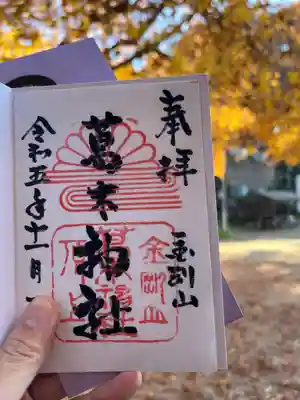 奉拝
金剛山
葛木神社
令和五年十一月
金剛山